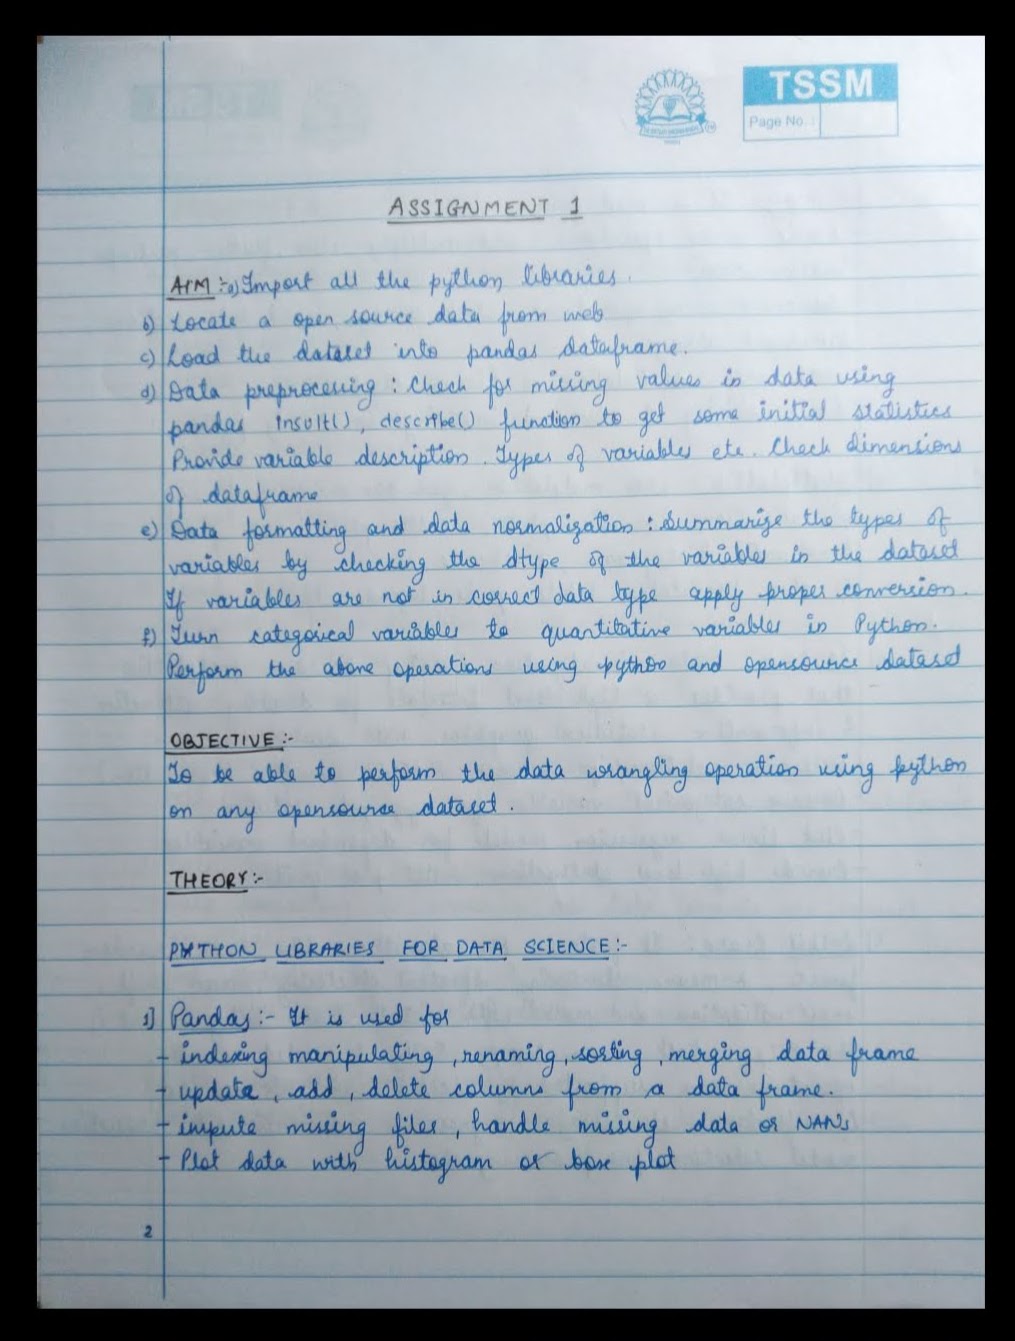 TSSM
Page No. :
ASSIGNMENT 1
AIM :- a) Import all the python libraries.
b) Locate a open source data from web
c) Load the dataset into pandas dataframe.
d) Data preprocessing : Check for missing values in data using
pandas insult(), describe() function to get some initial statistics
Provide variable description. Types of variables etc. Check dimensions
of dataframe
e) Data formatting and data normalization : Summarize the types of
variables by checking the dtype of the variables in the dataset
If variables are not in correct data type apply proper conversion.
f) Turn categorical variables to quantitative variables in Python.
Perform the above operations using python and opensource dataset
OBJECTIVE :-
To be able to perform the data wrangling operation using python
on any opensource dataset.
THEORY :-
PYTHON LIBRARIES FOR DATA SCIENCE :-
1] Pandas :- It is used for
- indexing manipulating, renaming, sorting, merging data frame
- update, add, delete columns from a data frame.
- impute missing files, handle missing data or NANs
- Plot data with histogram or box plot
2